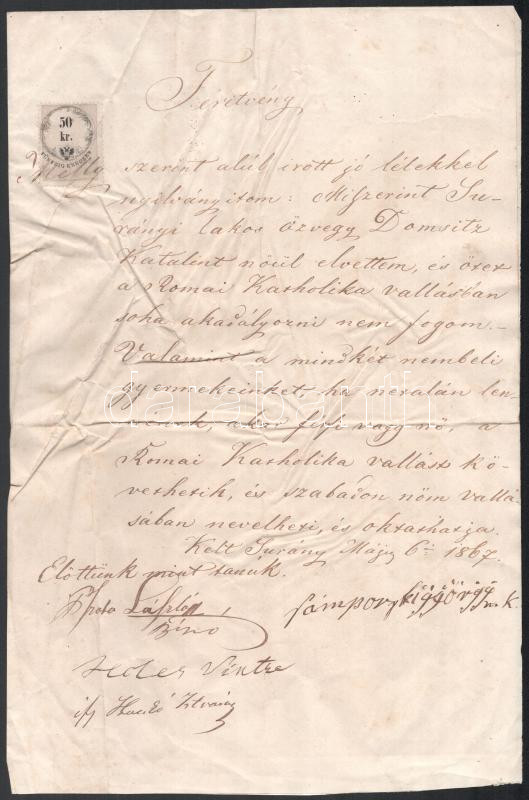 Téretvény
50
kr.
Melly szerint alúl irott jó lélekkel
nyilványitom: Miszerint Su-
rányi lakos özvegy Domsitz
Katalent nöül elvettem, és ötet
a Romai Katholika vallásban
soha akadályozni nem fogom.-
Valamint a mindkét nembeli
gyermekeinket, ha netalán len-
nenek, akar férfi vagy nö, a
Romai Katholika vallást kö-
vethetik, és szabadon nöm vallá
sában nevelheti, és oktathatja.
Kelt Surány Május 6án 1867.
Elöttünk mint tanuk.
László
biró
Viktor
ifj István